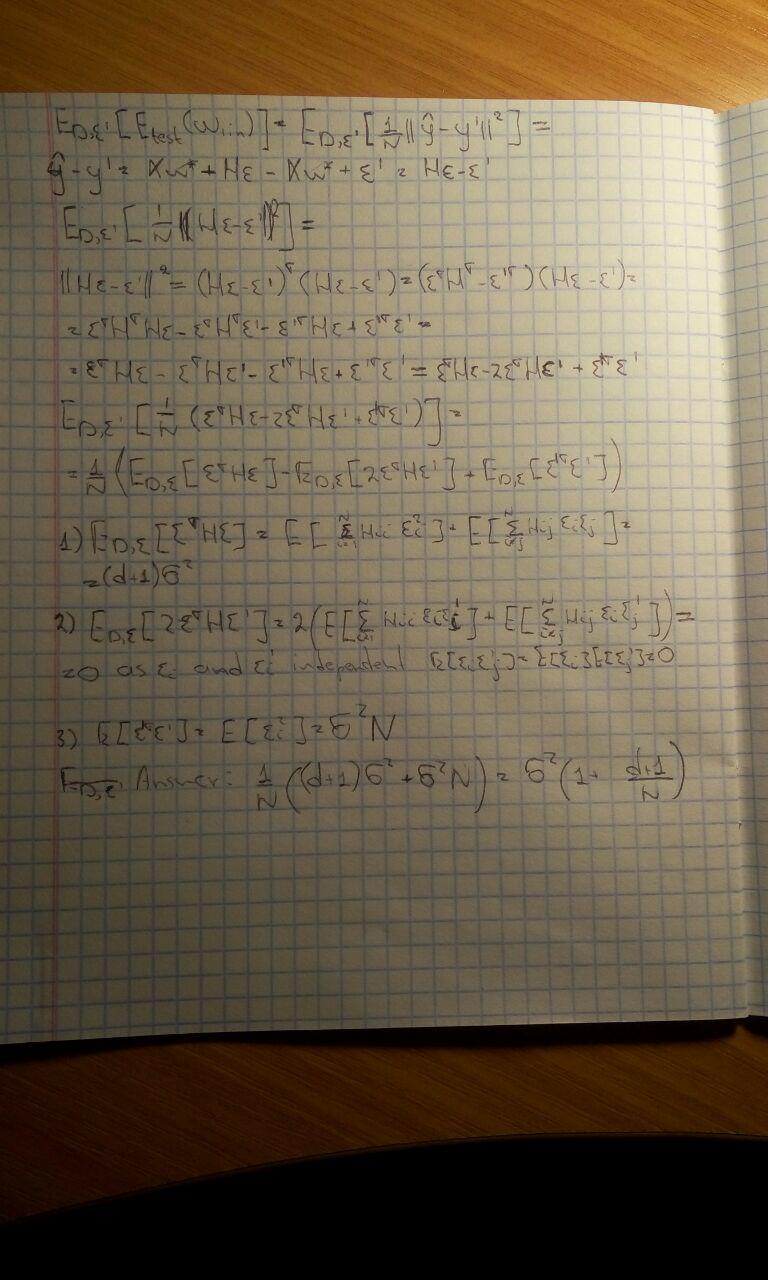 E_{D,ε'}[E_{test}(w_{lin})] = E_{D,ε'}[1/N ||ŷ - y'||²] =
ŷ - y' = Xw* + Hε - Xw* + ε' = Hε - ε'
E_{D,ε'}[1/N ||Hε - ε'||²] =
||Hε - ε'||² = (Hε - ε')ᵀ(Hε - ε') = (εᵀHᵀ - ε'ᵀ)(Hε - ε') =
= εᵀHᵀHε - εᵀHᵀε' - ε'ᵀHε + ε'ᵀε' =
= εᵀHε - εᵀHε' - ε'ᵀHε + ε'ᵀε' = εᵀHε - 2εᵀHε' + ε'ᵀε'
E_{D,ε'}[1/N (εᵀHε - 2εᵀHε' + ε'ᵀε')] =
= 1/N (E_{D,ε'}[εᵀHε] - E_{D,ε'}[2εᵀHε'] + E_{D,ε'}[ε'ᵀε'])
1) E_{D,ε'}[εᵀHε] = E[Σ_{i=1}^N H_{ii} ε_i²] + E[Σ_{i≠j}^N H_{ij} ε_i ε_j] =
= (d+1)σ²
2) E_{D,ε'}[2εᵀHε'] = 2(E[Σ_{i=1}^N H_{ii} ε_i ε_i'] + E[Σ_{i≠j}^N H_{ij} ε_i ε_j']) =
= 0 as ε_i and ε_i' independent
3) E[ε'ᵀε'] = E[ε_i'] = σ²N
Answer: 1/N ((d+1)σ² + σ²N) = σ²(1 + (d+1)/N)